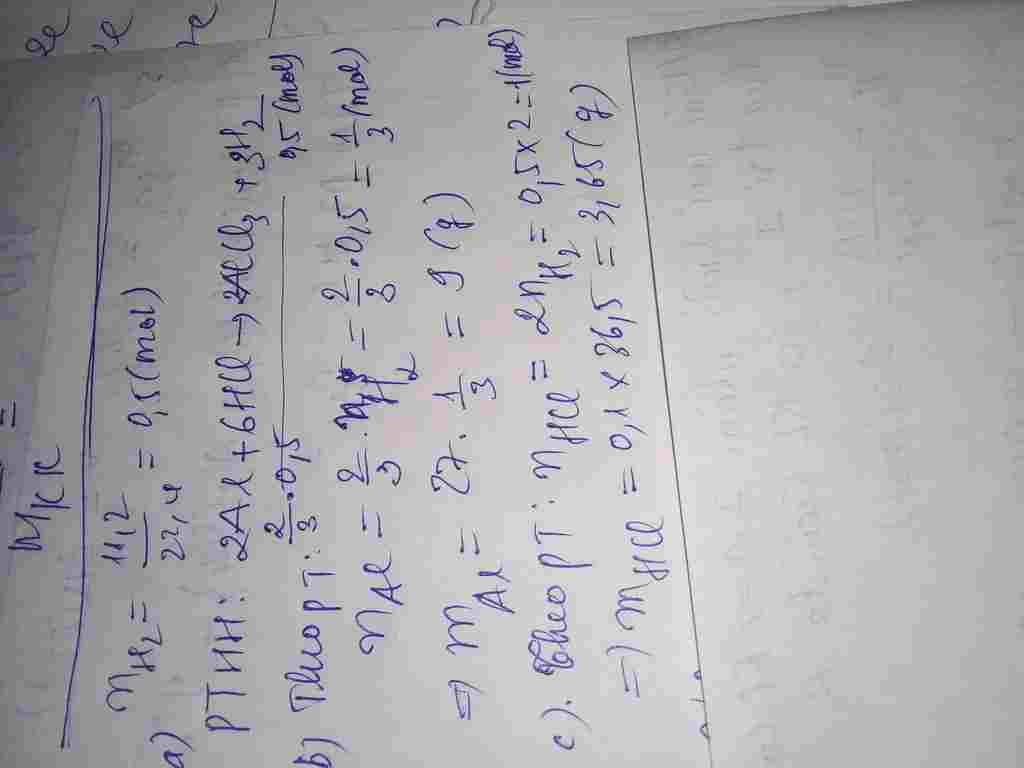 M_KK =
a) n_H₂ = 11,2/22,4 = 0,5 (mol)
PTHH: 2Al + 6HCl → 2AlCl₃ + 3H₂
2/3 . 0,5 0,5 (mol)
b) Theo PT:
n_Al = 2/3 . n_H₂ = 2/3 . 0,5 = 1/3 (mol)
=) m_Al = 27 . 1/3 = 9 (g)
c). Theo PT: n_HCl = 2n_H₂ = 0,5 x 2 = 1 (mol)
=) m_HCl = 0,1 x 36,5 = 3,65 (g)